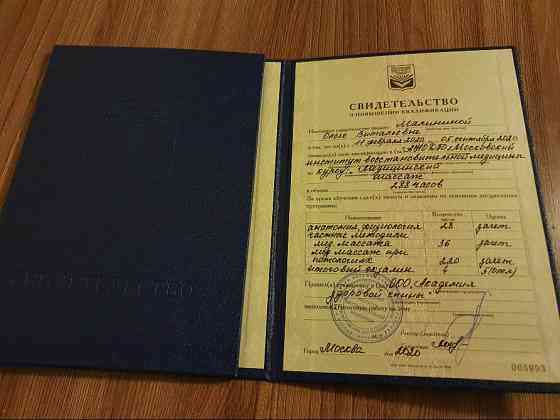 СВИДЕТЕЛЬСТВО
О ПОВЫШЕНИИ КВАЛИФИКАЦИИ
Настоящее свидетельство выдано Малининой
Ольге Витальевне
в том, что он(а) с 11 февраля 2020 по 05 сентября 2020
АНО ДПО "Московский
институт восстановительной медицины"
по курсу: "Медицинский
массаж"
в объеме 288 часов
За время обучения сдал(а) зачеты и экзамены по основным дисциплинам
программы:
Наименование Количество часов Оценка
анатомия, физиология 28 зачет.
частные методики
мед. массажа 36 зачет.
мед. массаж при
потологиях 220 зачет.
итоговый экзамен 4 5 (отл)
ООО "Академия
здоровой спины"
Город Москва год 2020